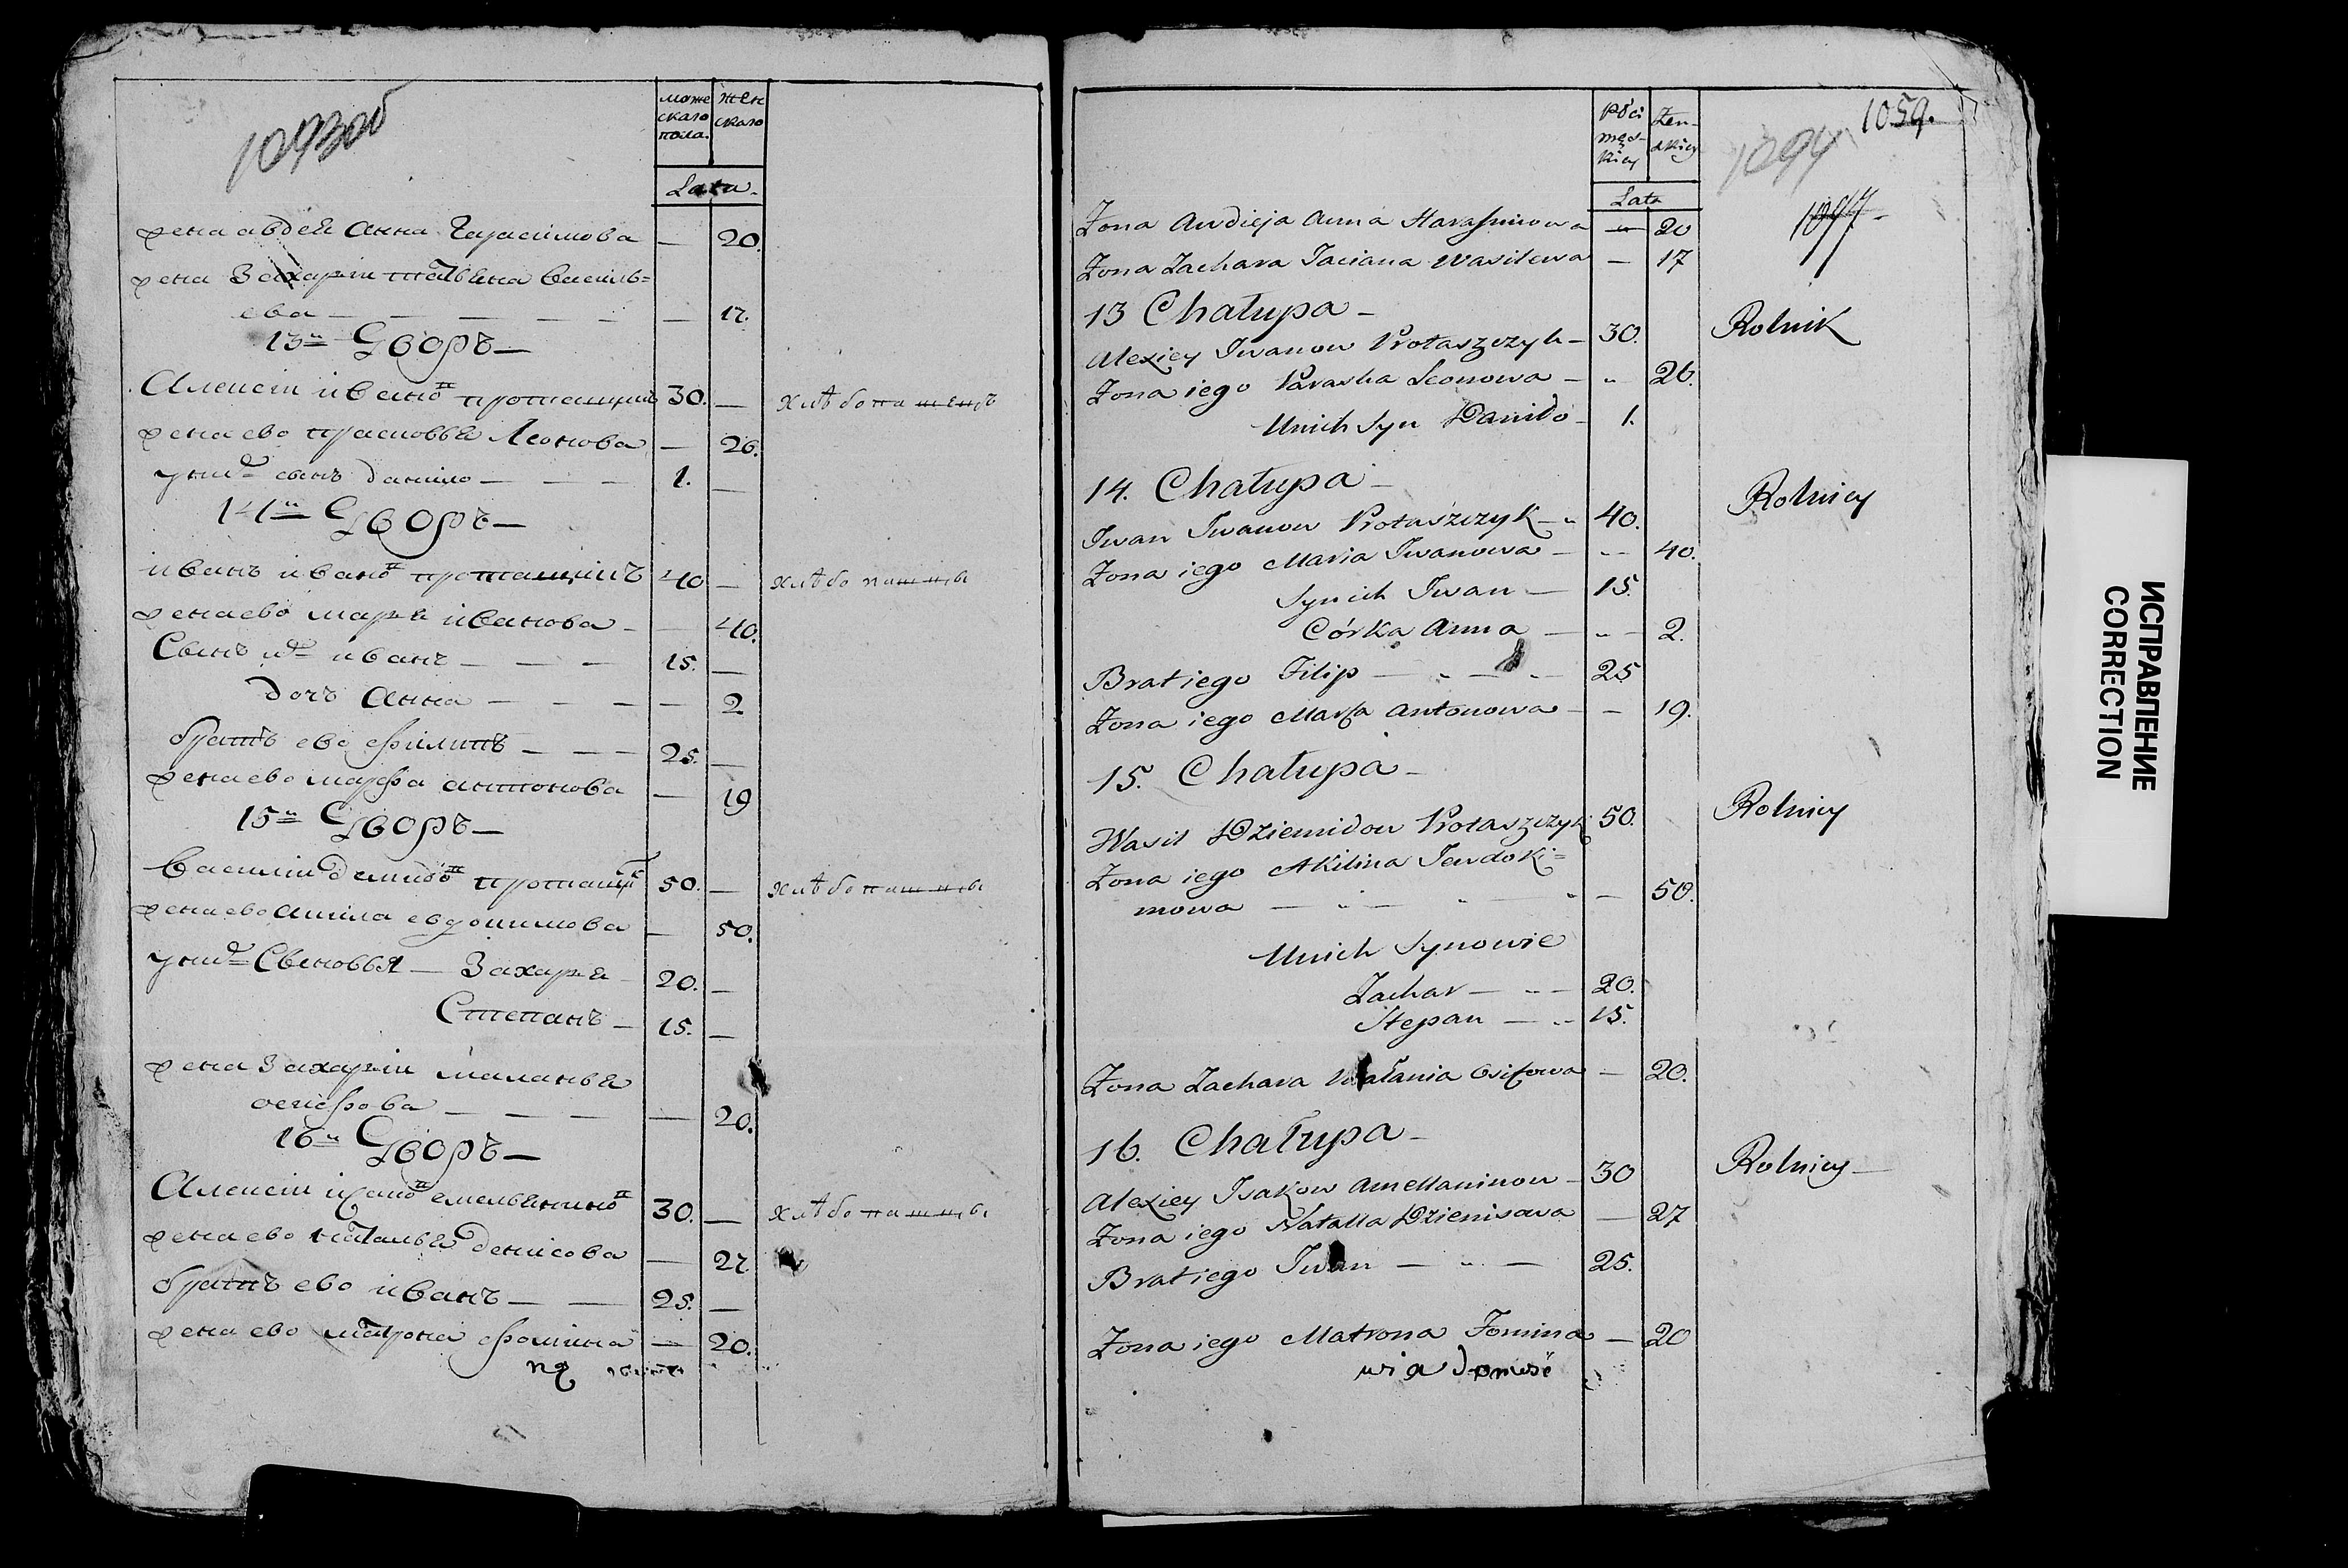 1093об
муже
скаго
пола.
жен
скаго
Lata.
жена авдея Анна Герасимова — 20.
жена Захарiи татьяна василь=
ева — — — — 17.
13й Дворъ —
Алексiи ивано протащикъ 30. — хлѣбопашецъ
жена ево прасковья Леонова — 26.
у нихъ сынъ данило — — — 1. —
14й Дворъ —
иванъ ивано протащикъ 40 — хлѣбопашцы
жена ево марья иванова — — 40.
Сынъ их иванъ — — — 15. —
дочь Анна — — — — 2
братъ ево филипъ — — — 25. —
жена ево марфа антонова — 19
15й Дворъ —
Василiи демидо протащик 50. — хлѣбопашцы
жена ево Акила евдокимова — 50.
у них Сыновья — Захарья — 20. —
Степанъ — 15. —
жена Захарiи маланья
осифова — — — — 20.
16й Дворъ —
Алексiи исако емельянино 30. — хлѣбопашцы
жена ево наталья денисова — 27
братъ ево иванъ — — 25. —
жена ево матрона фомина — 20.
płci
męs-
kiey
Żen-
skiey
Lata
1059.
1094
Żona Awdieja Anna Harasimowa — 20
Żona Zachara Taciana Wasilewa — 17
13 Chałupa —
Alexiey Iwanow Protaszczyk — 30. Rolnik
Żona iego Paraska Leonowa — " 26.
U nich Syn Daniło — 1.
14. Chałupa —
Iwan Iwanow Protaszczyk — " 40. Rolnicy
Żona iego Maria Iwanowa — " — 40.
Syn ich Iwan — 15.
Córka Anna — " — 2.
Brat iego Filip — " — " — 25
Żona iego Marfa Antonowa — — 19.
15. Chałupa —
Wasil Dziemidow Protaszczyk 50. Rolnicy
Żona iego Akilina Jewdoki=
mowa — " — " — " — 50.
U nich Synowie
Zachar — " — 20.
Stepan — " 15.
Żona Zachara Małania Osifowa — 20.
16. Chałupa —
Alexiey Isakow Amellaninow — 30 Rolnicy —
Żona iego Natalla Dzienisowa — 27
Brat iego Iwan — " — 25.
Żona iego Matrona Fomina — 20
wiadomość
ИСПРАВЛЕНИЕ
CORRECTION